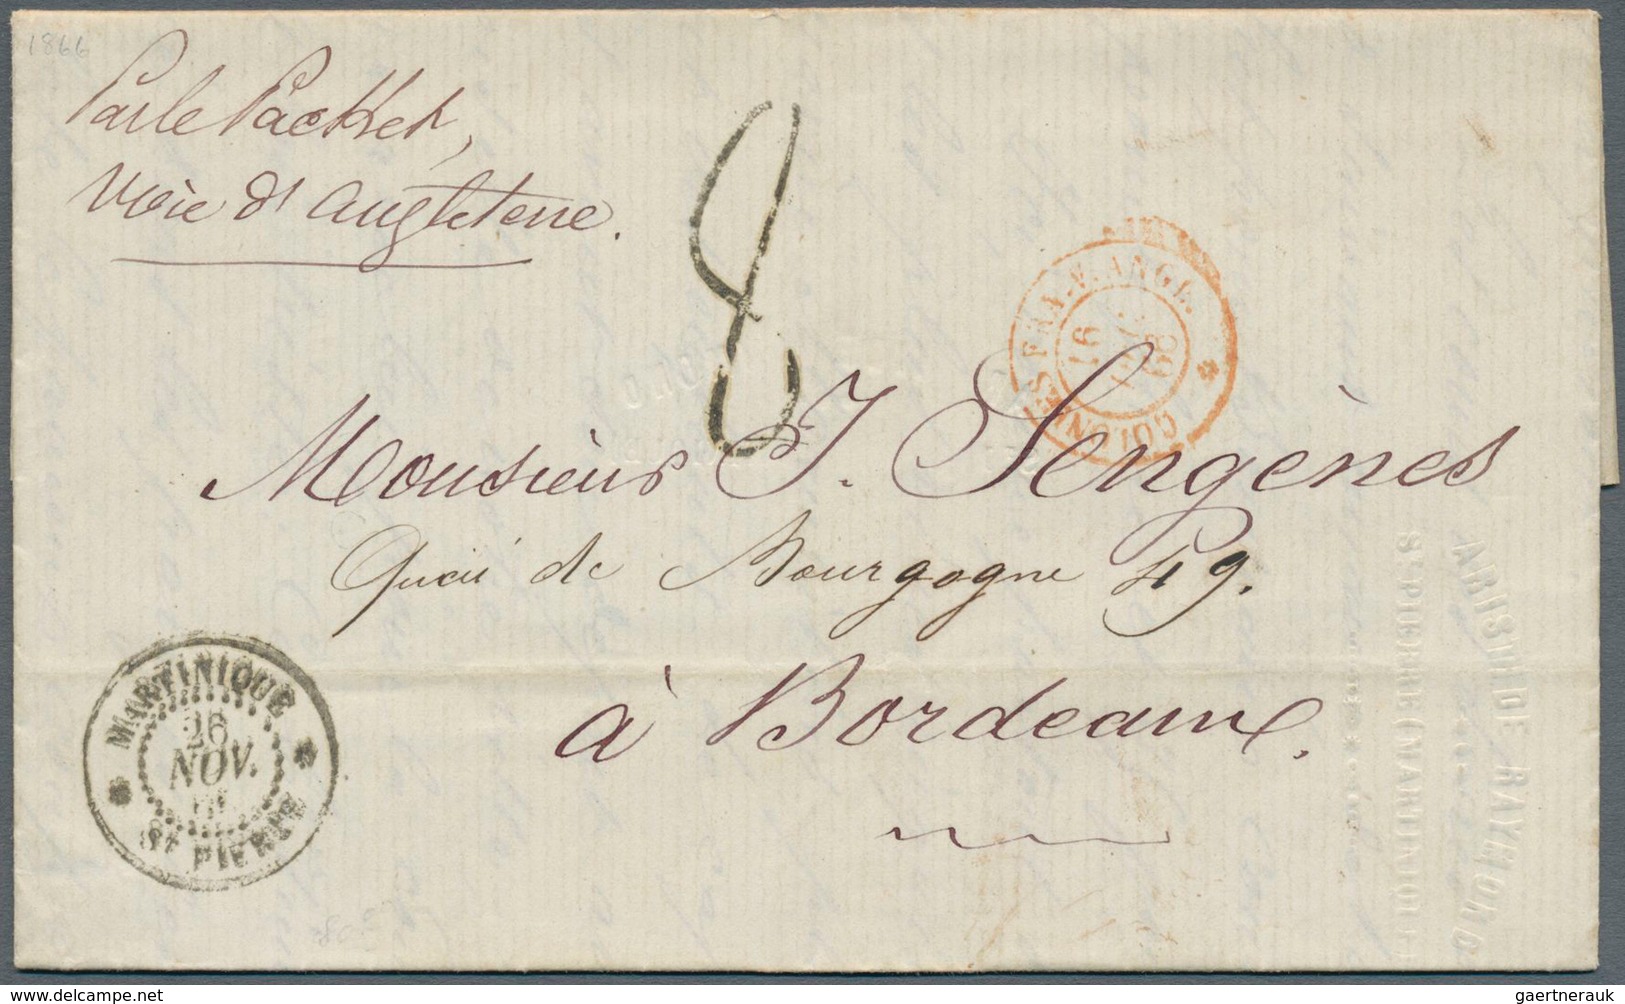 1866
Par le Packet,
Voie d'Angleterre.
8
COLONIES FRA. V. ANGL.
16
66
Monsieur J. Sengènes
Quai de Bourgogne 49.
à Bordeaux.
MARTINIQUE
26
NOV.
ST PIERRE
DE RAYMOND
ST PIERRE (MARTINIQUE)
gaertnerauk © delcampe.net